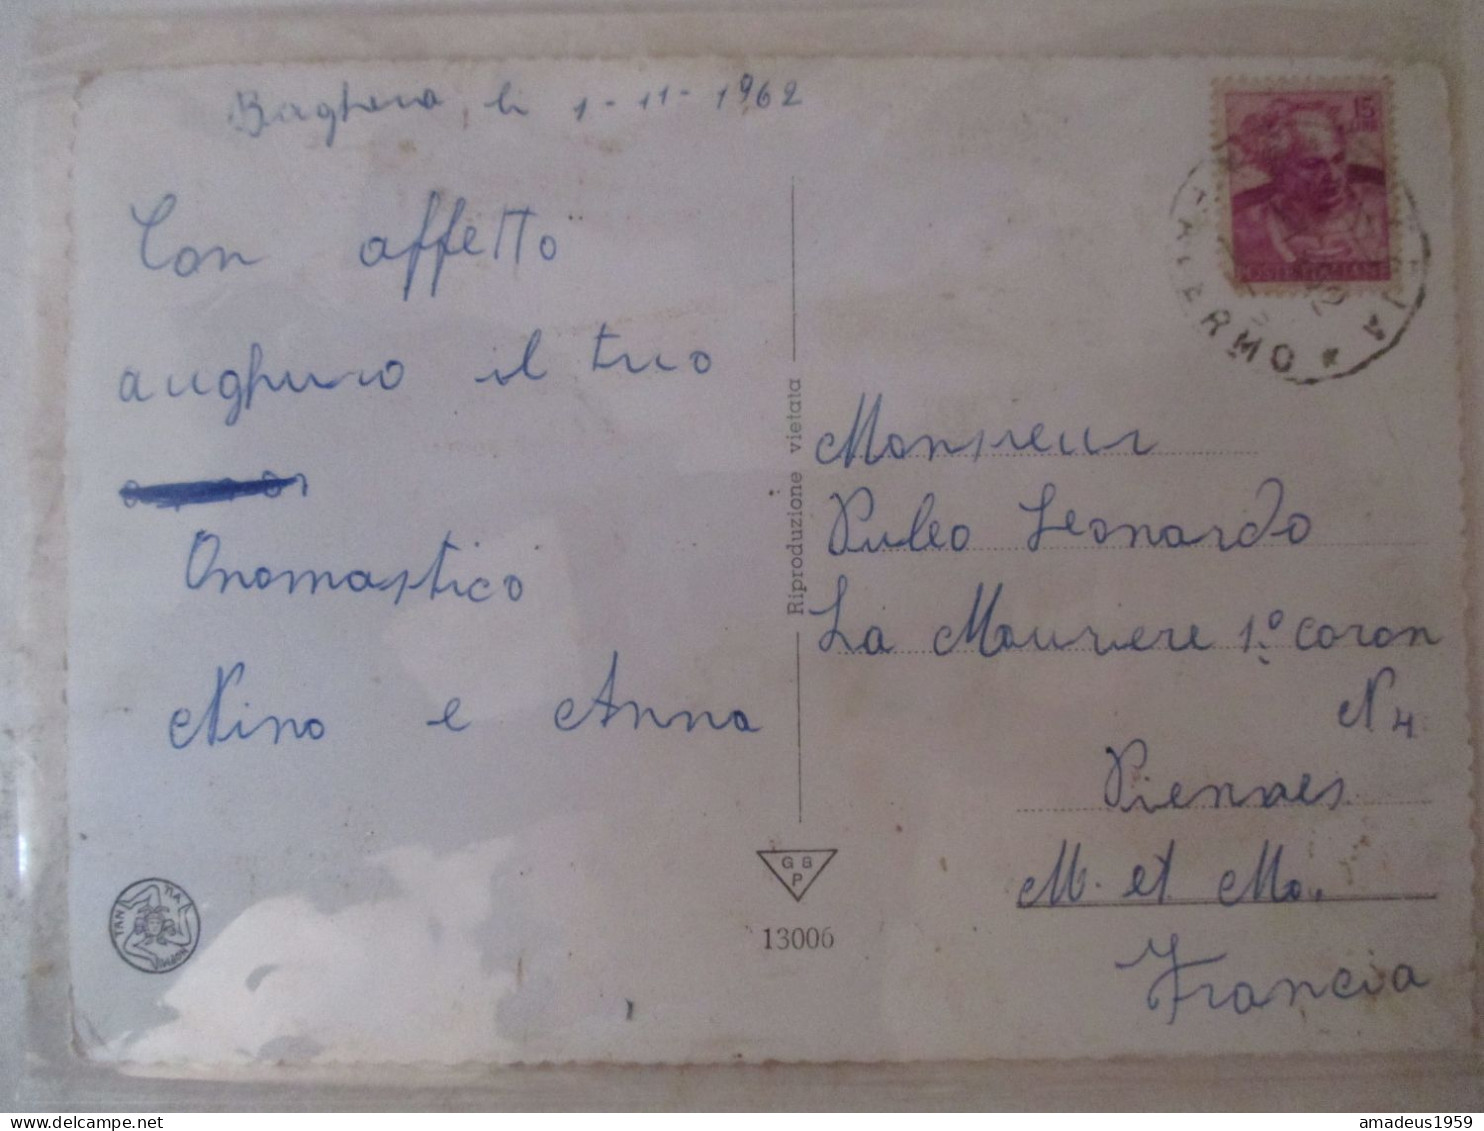 Bagheria, li 1-11-1962
Con affetto
aughuro il tuo
Onomastico
Nino e Anna
15
POSTE ITALIANE
PALERMO *
Riproduzione vietata
Monsieur
Puleo Leonardo
La Mouriere 1.º coron
N 4
Piennes
M. et Mo.
Francia
G B
P
13006
www.delcampe.net
amadeus1959